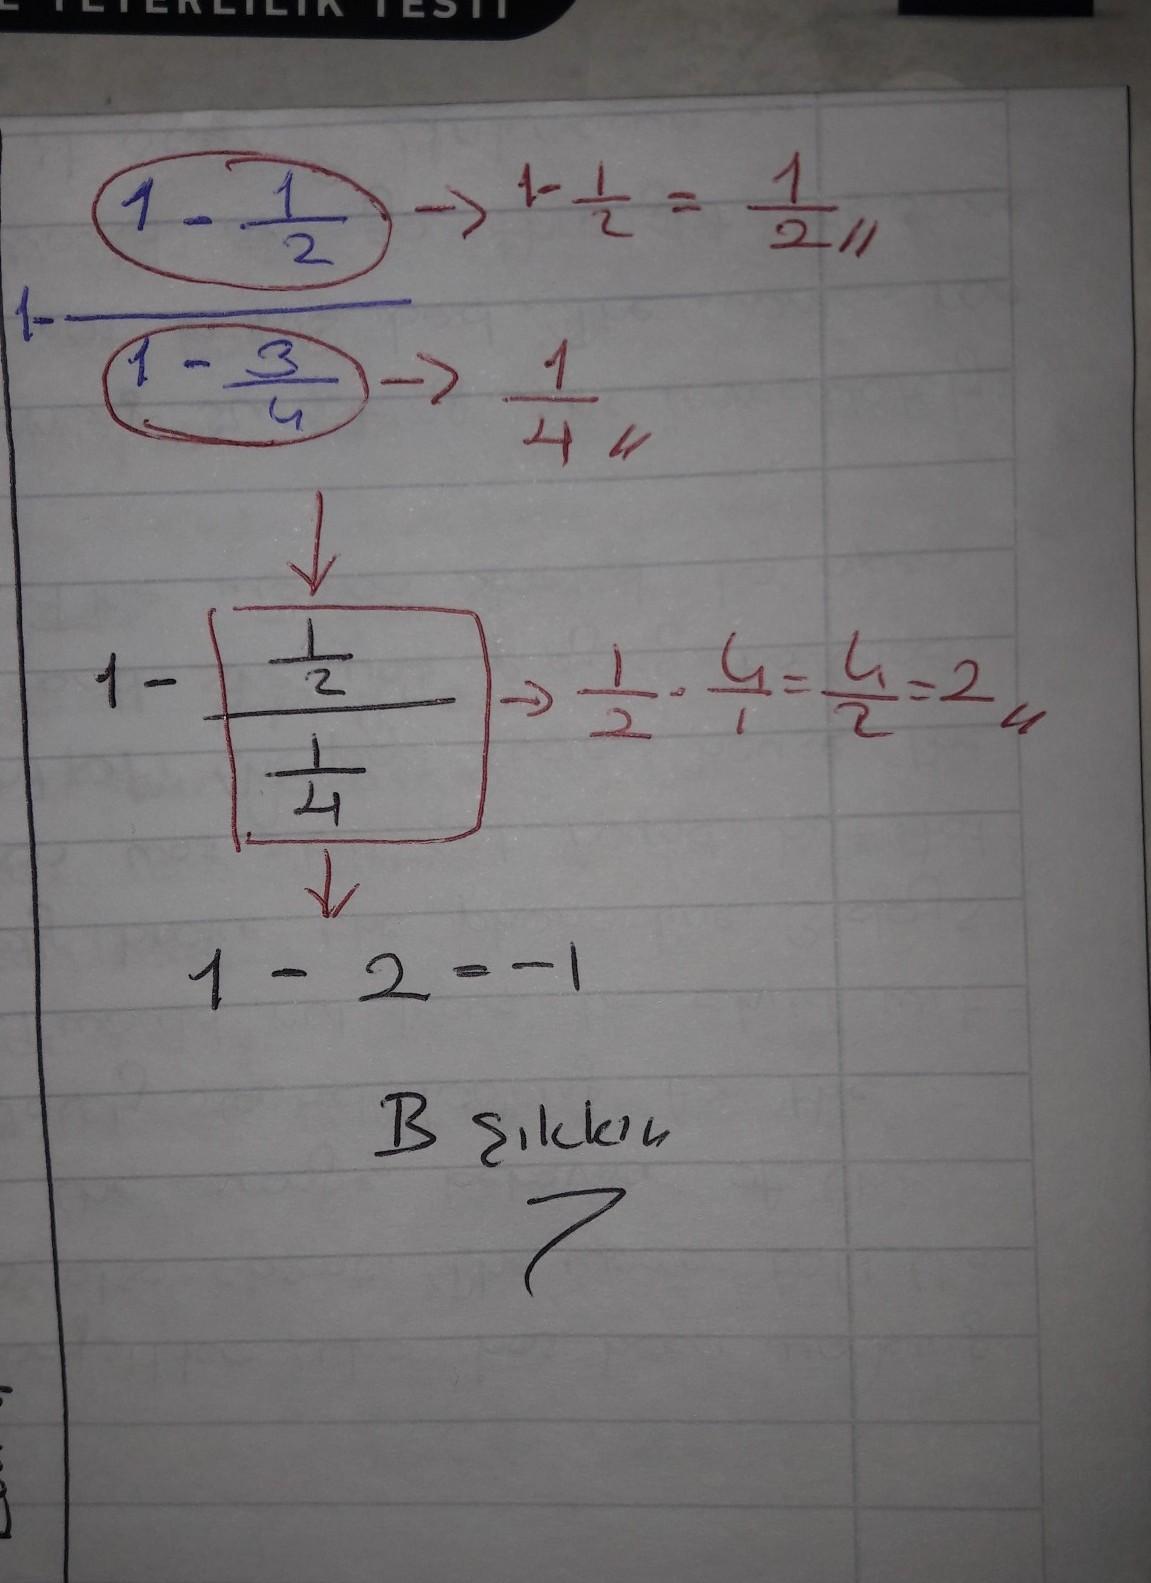 YETERLİLİK TESTİ
1 - 1/2 -> 1 - 1/2 = 1/2 //
1- ———
1 - 3/4 -> 1/4 //
1 - (1/2)/(1/4) -> 1/2 · 4/1 = 4/2 = 2 //
1 - 2 = -1
B şıkkı